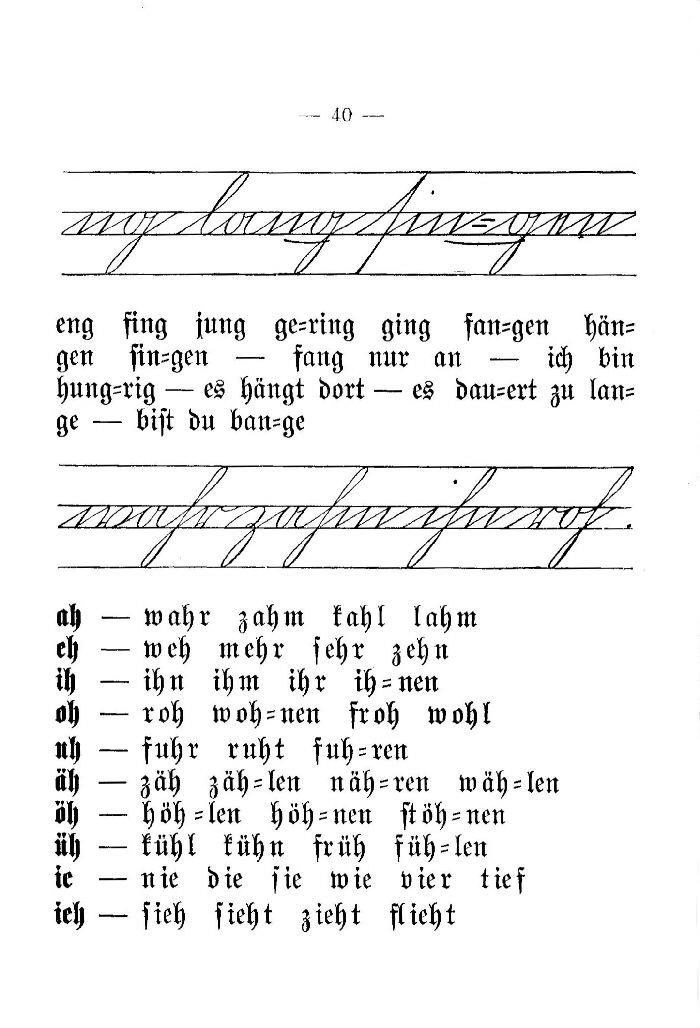 — 40 —
ng lang ſin=gen
eng fing jung ge=ring ging fan=gen hän=
gen ſin=gen — fang nur an — ich bin
hung=rig — es hängt dort — es dau=ert zu lan=
ge — biſt du ban=ge
wahr zahm ihn roh.
ah — wahr zahm kahl lahm
eh — weh mehr ſehr zehn
ih — ihn ihm ihr ih=nen
oh — roh woh=nen froh wohl
uh — fuhr ruht fuh=ren
äh — zäh zäh=len näh=ren wäh=len
öh — höh=len höh=nen ſtöh=nen
üh — kühl kühn früh füh=len
ie — nie die ſie wie vier tief
ieh — ſieh ſieht zieht flieht